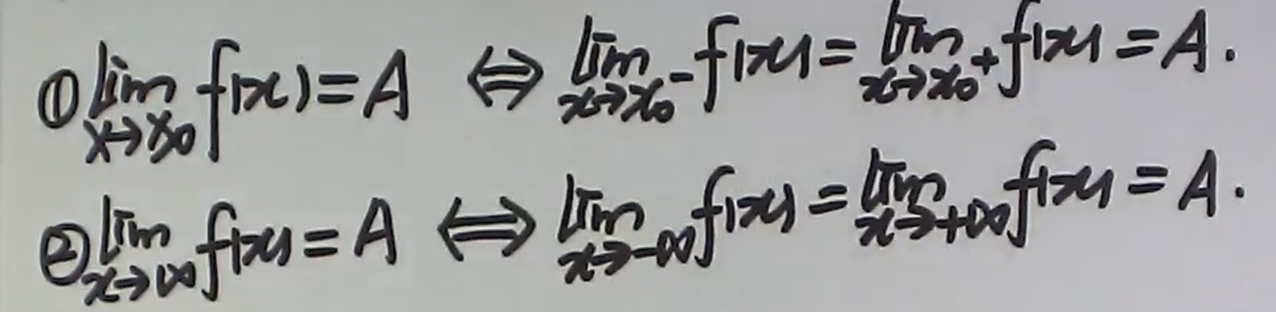 ① lim_{x→x₀} f(x) = A ⇔ lim_{x→x₀⁻} f(x) = lim_{x→x₀⁺} f(x) = A.
② lim_{x→∞} f(x) = A ⇔ lim_{x→-∞} f(x) = lim_{x→+∞} f(x) = A.